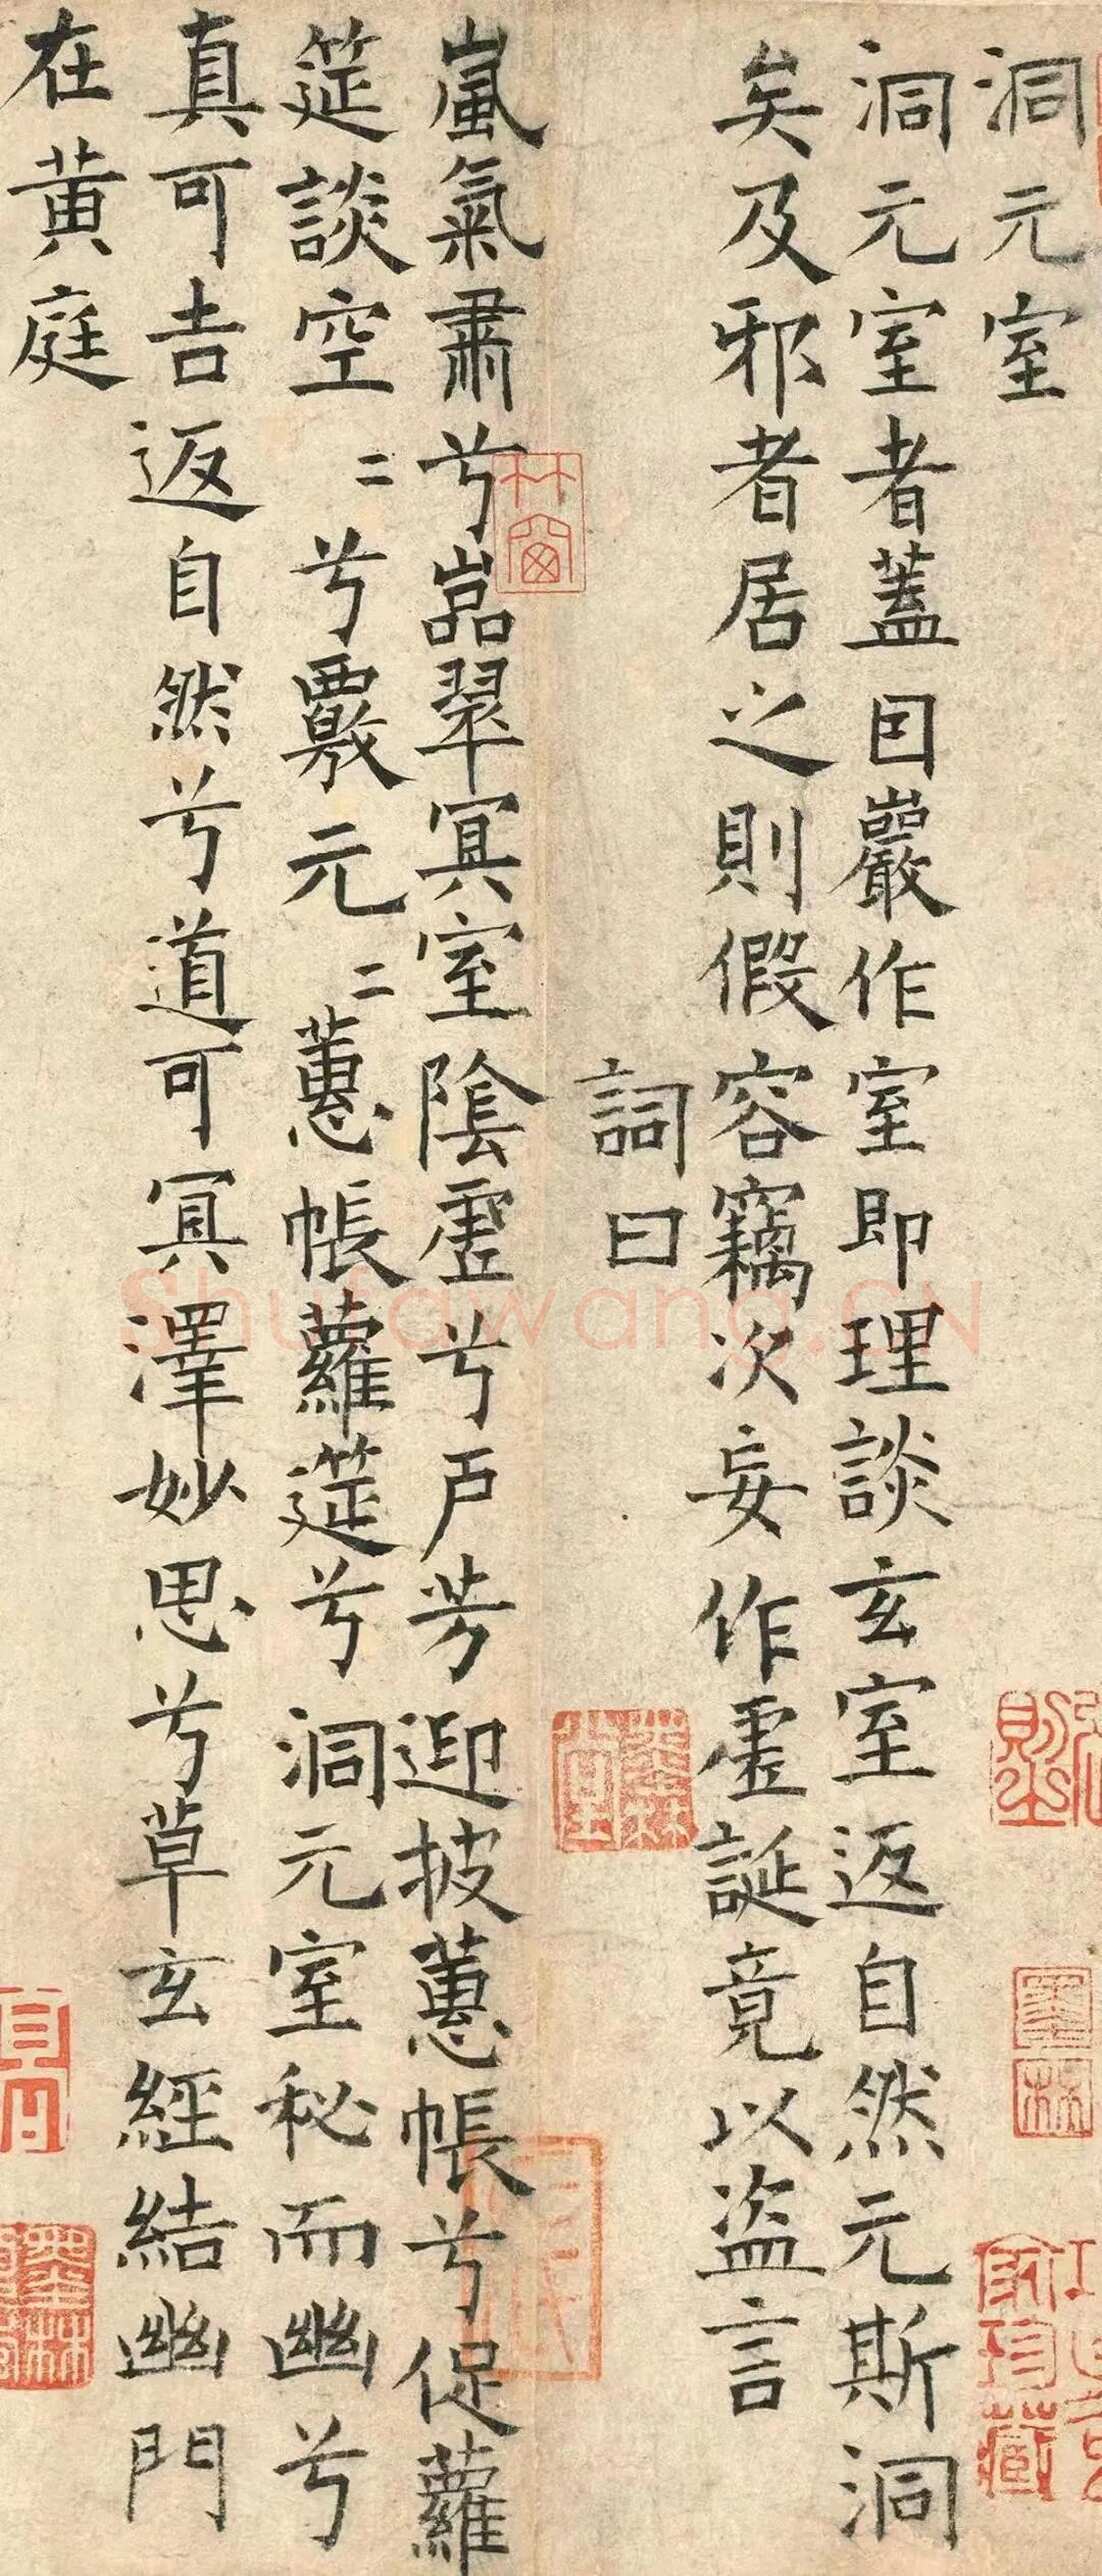 洞元室
洞元室者蓋因巖作室即理談玄室返自然元斯洞
矣及邪者居之則假容竊次妄作虛誕竟以盜言
詞曰
嵐氣肅兮嵓翠冥室陰虛兮戶芳迎披蕙帳兮促蘿
筵談空〻兮覈元〻蕙帳蘿筵兮洞元室秘而幽兮
真可吉返自然兮道可冥澤妙思兮草玄經結幽門
在黃庭
竹窗
墨林
家珍藏
Shufawang.CN